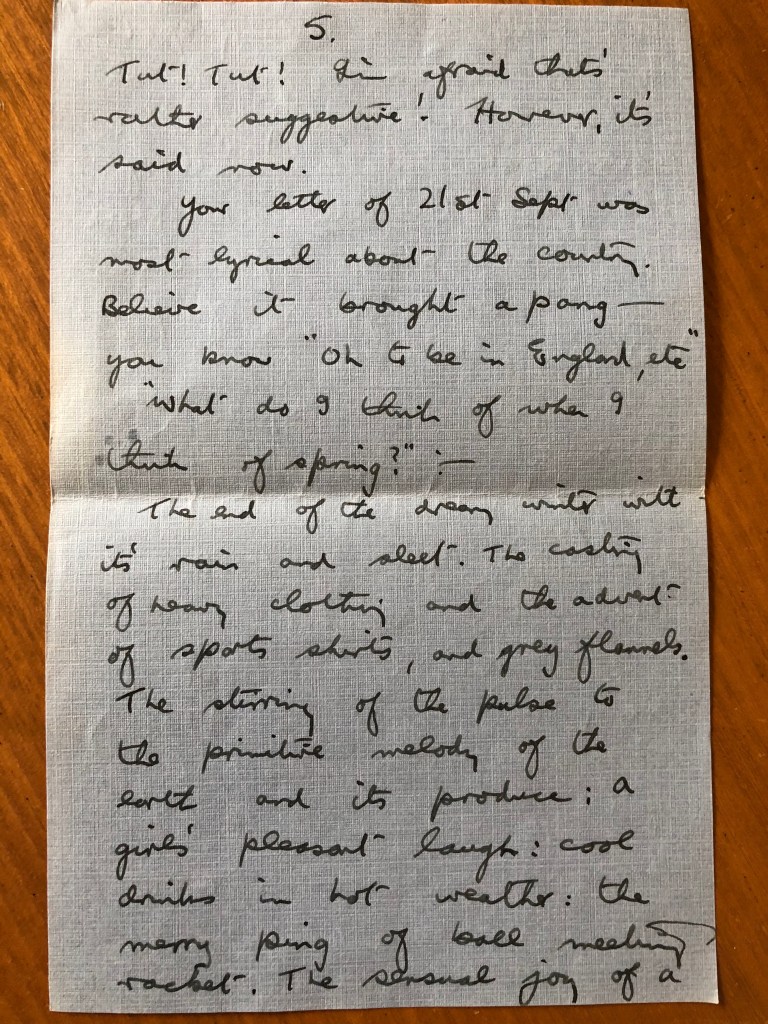 5.
Tut! Tut! I'm afraid that's
rather suggestive! However, it's
said now.
Your letter of 21st Sept was
most lyrical about the country.
Believe it brought a pang —
you know "Oh to be in England, etc"
"What do I think of when I
think of spring?" :—
The end of the dreary winter with
its' rain and sleet. The casting
of heavy clothing and the advent
of sports shirts, and grey flannels.
The stirring of the pulse to
the primitive melody of the
earth and its produce: a
girls' pleasant laugh: cool
drinks in hot weather: the
merry ping of ball meeting
racket. The sensual joy of a